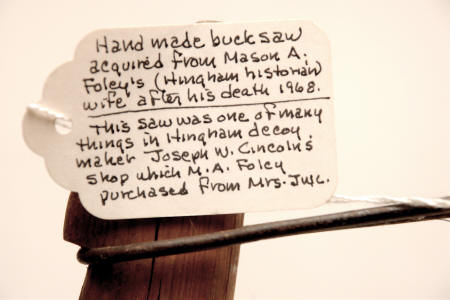 Hand made buck saw
acquired from Mason A.
Foley's (Hingham historian)
wife after his death 1968.
This saw was one of many
things in Hingham decoy
maker Joseph W. Lincoln's
shop which M. A. Foley
purchased from Mrs. J.W.L.